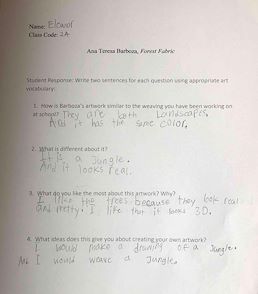 Name: Eleanor
Class Code: 2A
Ana Teresa Barboza, Forest Fabric
Student Response: Write two sentences for each question using appropriate art
vocabulary:
1. How is Barboza's artwork similar to the weaving you have been working on
at school? They are both Landscapes.
And it has the same color.
2. What is different about it?
It is a Jungle.
And it looks real.
3. What do you like the most about this artwork? Why?
I like the trees because they look real
and pretty. I like that it looks 3D.
4. What ideas does this give you about creating your own artwork?
I would make a drawing of a Jungle.
And I would weave a Jungle.